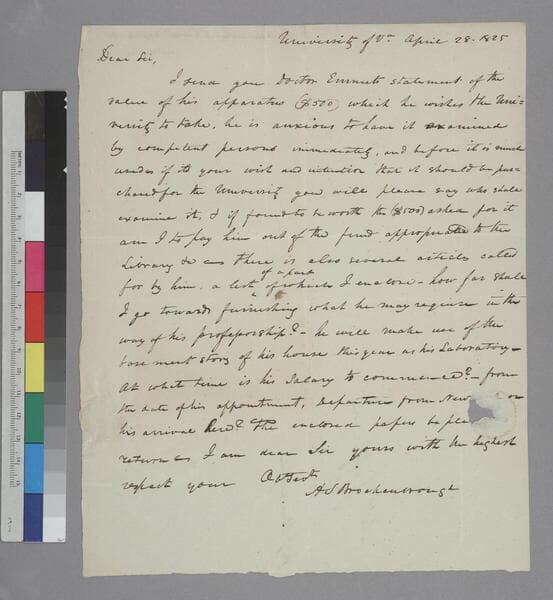 University of Va April 28. 1825
Dear Sir,
I send you Doctor Emmets statement of the
value of his apparatus ($500) which he wishes the Uni=
versity to take, he is anxious to have it examined
by competent persons immediately, and before it is much
used if it is your wish and intention that it should be pur=
chased for the University you will please say who shall
examine it, & if found to be worth the ($500) asked for it
am I to pay him out of the fund appropriated to the
Library &c — there is also several articles called
for by him. a list of a part of which I enclose - how far shall
I go towards furnishing what he may require in the
way of his professorship? - he will make use of the
basement story of his house this year as his Laboratory -
At what time is his Salary to commence? - from
the date of his appointment, departure from New or
his arrival here? The enclosed papers be
return I am dear Sir yours with the highest
respect your Obt Sert
A S Brockenbrough